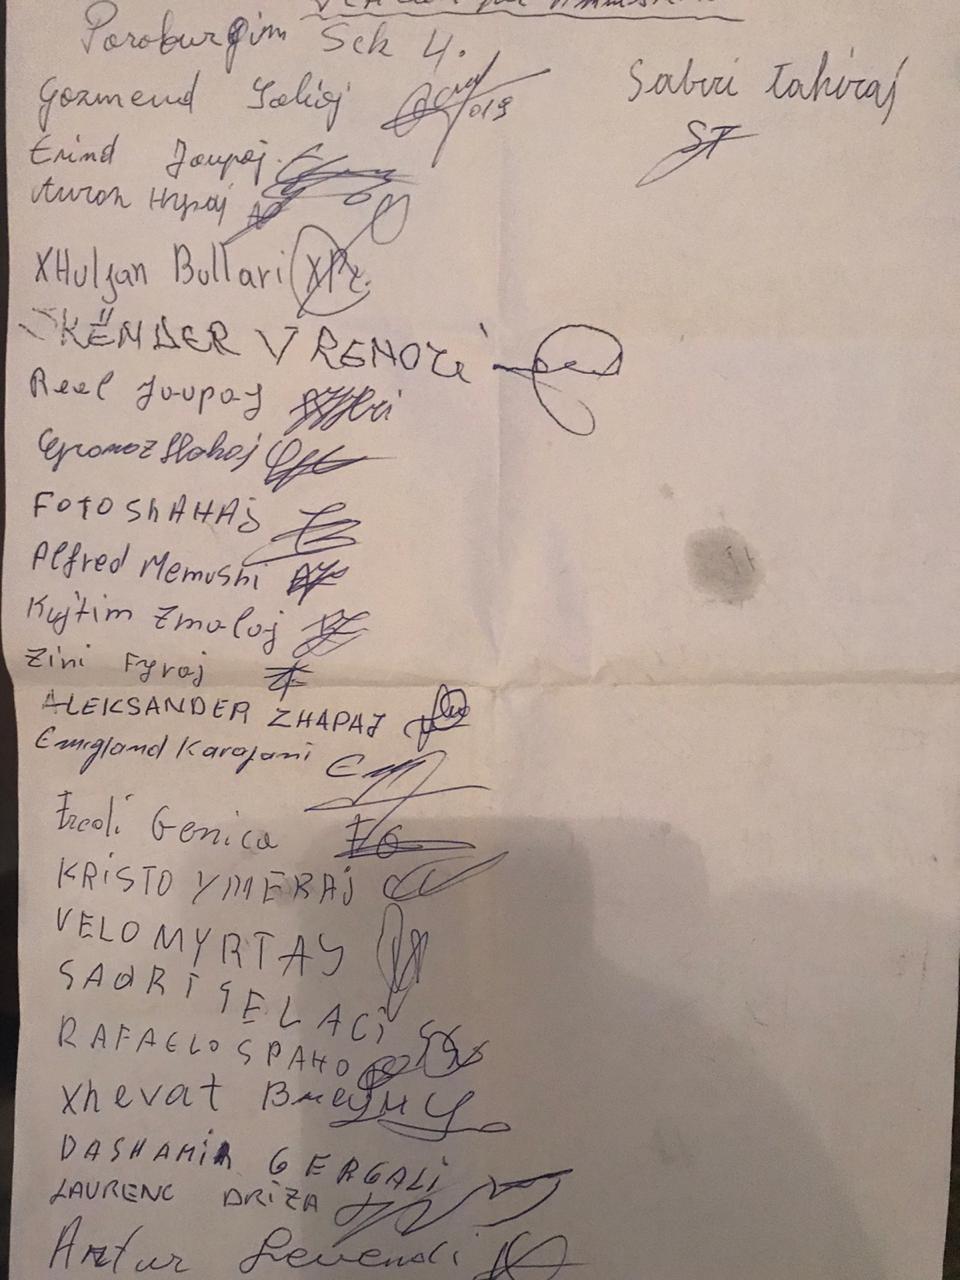 Paroburgim Sek 4.
Sabri Tahiraj
ST
Gazmend
019
Erind Jaupaj
Auron Hysaj
XHuljan Bullari
SKËNDER VRENOZi
Reel Jaupaj
Gramoz Hakaj
FOTO ShAHAj
Alfred Memushi
Kujtim Zmalaj
Zini Fyraj
ALEKSANDER ZHAPAJ
Emigland Karajani
Ercoli Genica EG
KRiSTO YMERAj
VELO MYRTAJ
SADRI SELACi
RAFAELO SPAHO
Xhevat
DASHAMiR GERGALi
LAURENC DRiZA
Artur Levendi